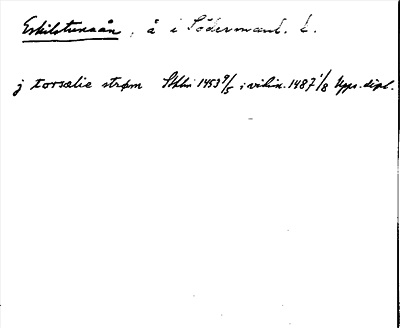 Eskilstunaån, å i Södermanl. l.
j torsælie strøm Sthlm 1453 9/5 ; vidim. 1487 1/8 Upps. dipl.